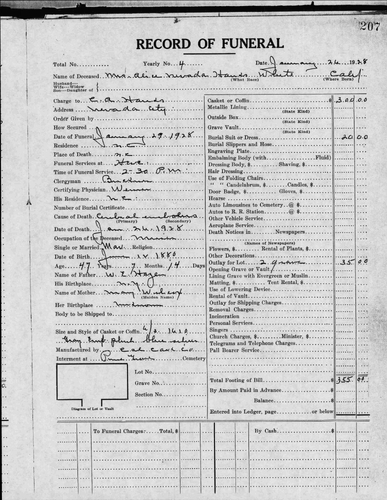 207
RECORD OF FUNERAL
Total No. Yearly No. 4 Date January 26, 1928
Name of Deceased Mrs. Alice Nevada Hawes White Calif
(What Race) (Where Born)
Charge to
Address Nevada City
Order Given by
How Secured
Date of Funeral January 29, 1928
Residence N.C.
Place of Death N.C.
Funeral Services at
Time of Funeral Service 2-30 P.M.
Clergyman
Certifying Physician
His Residence N.C.
Number of Burial Certificate
Cause of Death Cerebral embolism
(Primary) (Secondary)
Date of Death Jan. 26, 1928
Occupation of the Deceased
Single or Married Mar. Religion
Date of Birth 1880
Age 47 Years 7 Months 14 Days
Name of Father W. E.
His Birthplace N.Y.
Name of Mother Mary Wilcox
(Maiden Name)
Her Birthplace Unknown
Body to be Shipped to
Size and Style of Casket or Coffin 6/0
Gray plush blue silver
Manufactured by Cal. Cask. Co.
Interment at Pine Grove Cemetery
Lot No.
Grave No.
Section No.
Diagram of Lot or Vault
Casket or Coffin $ 300 00
Metallic Lining
(State Kind)
Outside Box
(State Kind)
Grave Vault
(State Kind)
Burial Suit or Dress 20 00
Burial Slippers and Hose
Engraving Plate
Embalming Body (with Fluid)
Dressing Body, $ Shaving, $
Hair Dressing
Use of Folding Chairs
" " Candelabrum, $ Candles, $
Door Badge, $ Gloves, $
Hearse
Auto Limousines to Cemetery @ $
Autos to R. R. Station @ $
Other Vehicle Service
Aeroplane Service
Death Notices in Newspapers
(Names of Newspapers)
Flowers, $ Rental of Plants, $
Other Decorations
Outlay for Lot 2 graves 35 00
Opening Grave or Vault
Lining Grave with Evergreen or Muslin
Matting, $ Tent Rental, $
Use of Lowering Device
Rental of Vault
Outlay for Shipping Charges
Removal Charges
Incineration
Personal Services
Singers
Church Charges, $ Minister, $
Telegrams and Telephone Charges
Pall Bearer Service
Total Footing of Bill $ 355
By Amount Paid in Advance $
Balance $
Entered into Ledger, page or below
To Funeral Charges: Total, $ By Cash $